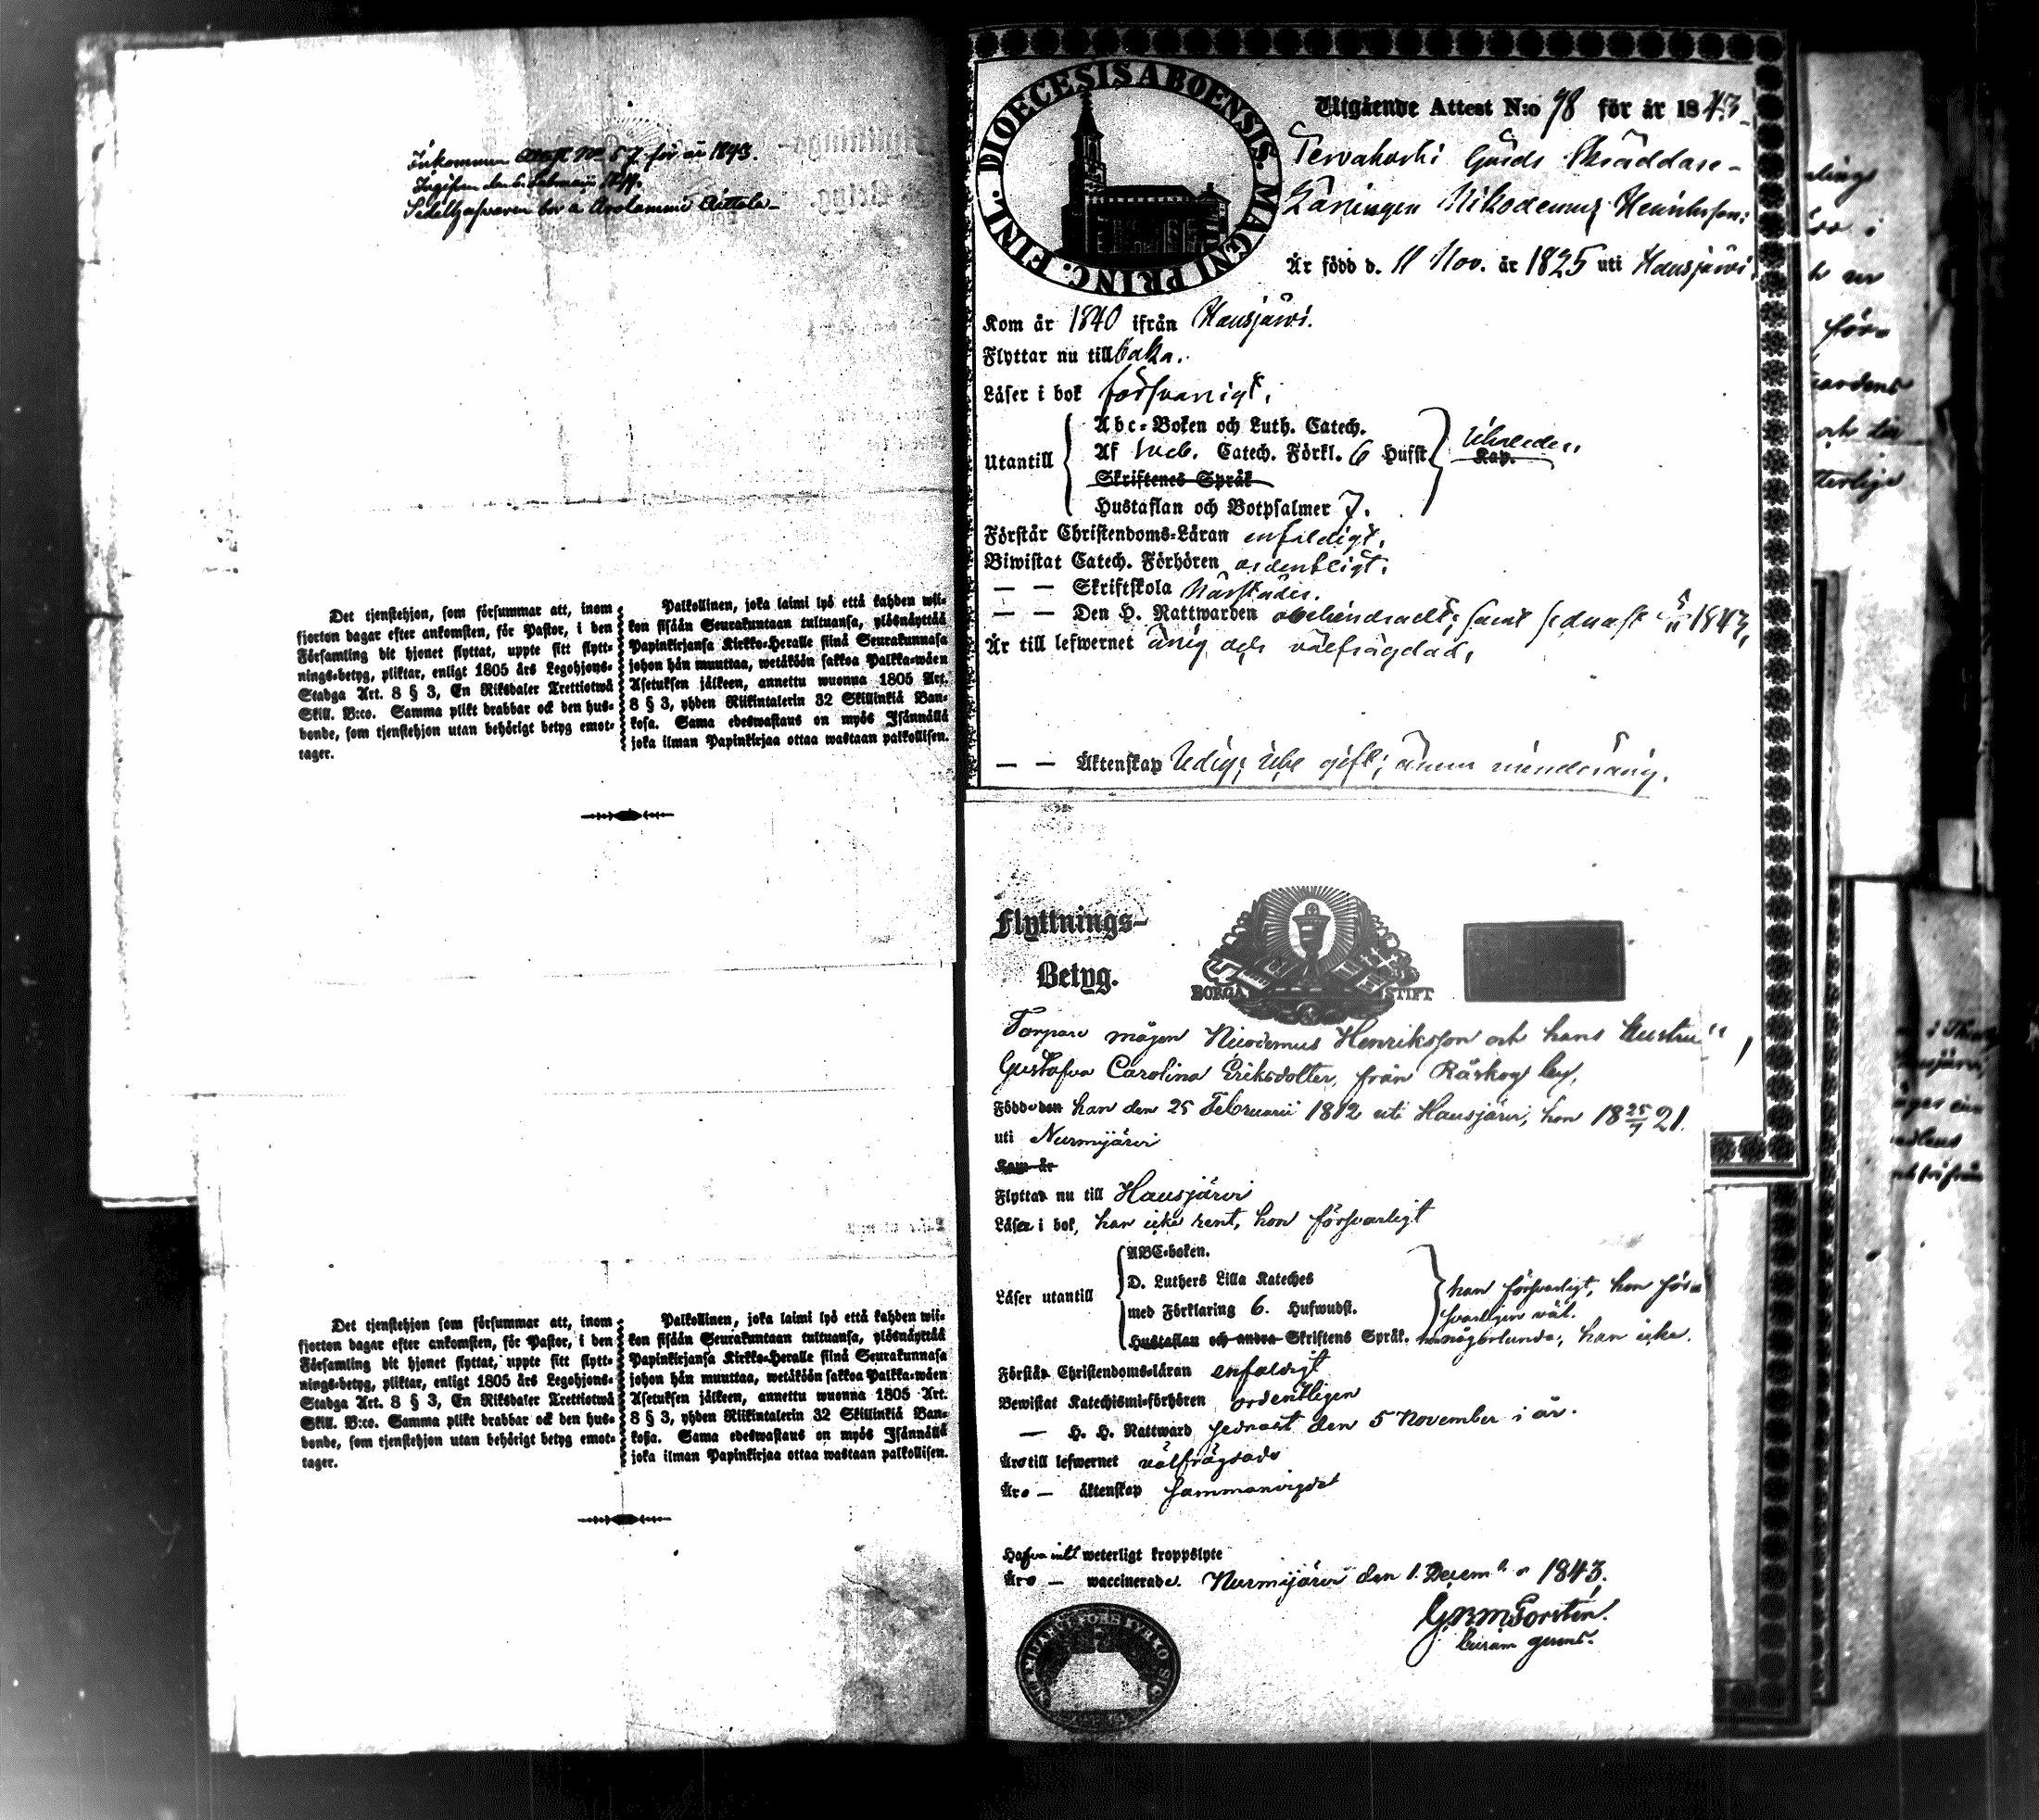 Inkommen Attest No 57 för år 1843.
Ingifven den 6 Februarii
Sedelhafvaren bor a Arolammi Aittala
Det tjenstehjon, som försummar att, inom
fjorton dagar efter ankomsten, för Pastor, i den
Församling dit hjonet flyttat, uppte sitt flytt-
nings-betyg, pliktar, enligt 1805 års Legohjons-
Stadga Art. 8 § 3, En Riksdaler Trettiotwå
Skill. B:co. Samma plikt drabbar ock den hus-
bonde, som tjenstehjon utan behörigt betyg emot-
tager.
Palkollinen, joka laimi lyö että kahden wii-
kon sisään Seurakuntaan tultuansa, ylösnäyttää
Papinkirjansa Kirkko-Heralle siinä Seurakunnasa
johon hän muuttaa, wetäköön sakkoa Palkka-wäen
Asetuksen jälkeen, annettu wuonna 1805 Art.
8 § 3, yhden Riikintalerin 32 Skillinkiä Ban-
kosa. Sama edeswastaus on myös Isännällä
joka ilman Papinkirjaa ottaa wastaan palkollisen.
Det tjenstehjon som försummar att, inom
fjorton dagar efter ankomsten, för Pastor, i den
Församling dit hjonet flyttat, uppte sitt flytt-
nings-betyg, pliktar, enligt 1805 års Legohjons-
Stadga Art. 8 § 3, En Riksdaler Trettiotwå
Skill. B:co. Samma plikt drabbar ock den hus-
bonde, som tjenstehjon utan behörigt betyg emot-
tager.
Palkollinen, joka laimi lyö että kahden wii-
kon sisään Seurakuntaan tultuansa, ylösnäyttää
Papinkirjansa Kirkko-Heralle siinä Seurakunnasa
johon hän muuttaa, wetäköön sakkoa Palkka-wäen
Asetuksen jälkeen, annettu wuonna 1805 Art.
8 § 3, yhden Riikintalerin 32 Skillinkiä Ban-
kosa. Sama edeswastaus on myös Isännällä
joka ilman Papinkirjaa ottaa wastaan palkollisen.
DIOECESIS ABOENSIS MAGNI PRINC. FINL.
Utgående Attest N:o 98 för år 1843
Terwakoski Gårds Skräddare-
Lärlingen Nikodemus Henriksson;
Är född d. 11 Nov. år 1825 uti Hausjärwi.
Kom år 1840 ifrån Hausjärwi.
Flyttar nu tillbaka.
Läser i bok försvarligt.
Utantill
Abc-Boken och Luth. Catech.
Af Catech. Förkl. 6 Hufst
Kap.
Skriftenes Språk
Hustaflan och Botpsalmer 7.
Förstår Christendoms-Läran enfaldigt.
Biwistat Catech. Förhören ordentligt.
— — Skriftskola
— — Den H. Nattwarden obehindradt; samt sednast 5/11 1843,
Är till lefwernet ärlig och välfrägdad,
— — Äktenskap ledig; gift; ännu minderårig.
Flyttnings-
Betyg.
BORGÅ STIFT
Torpare mågen Nicodemus Henriksson och hans hustru
Gustafva Carolina Eriksdotter, från Råskog by,
Född den han den 25 Februarii 1812 uti Hausjärvi, hon 18 25/7 21.
uti Nurmijärvi
Kom år
Flyttar nu till Hausjärvi
Läser i bok, han icke rent, hon försvarligt
Läser utantill
ABC-boken.
D. Luthers Lilla Kateches
med Förklaring 6. Hufwudst.
han försvarligt, hon för-
svarligen väl.
Hustaflan och andra Skriftens Språk. någorlunda, han icke.
Förstår Christendomsläran enfaldigt
Bewistat Katechismi-förhören ordentligen
— H. H. Nattward sednast den 5 November i år.
Äro till lefwernet välfrägdade
Äro — äktenskap sammanvigde
Hafva intet weterligt kroppslyte
Äro — waccinerade. Nurmijärvi den 1. Decemb. 1843.